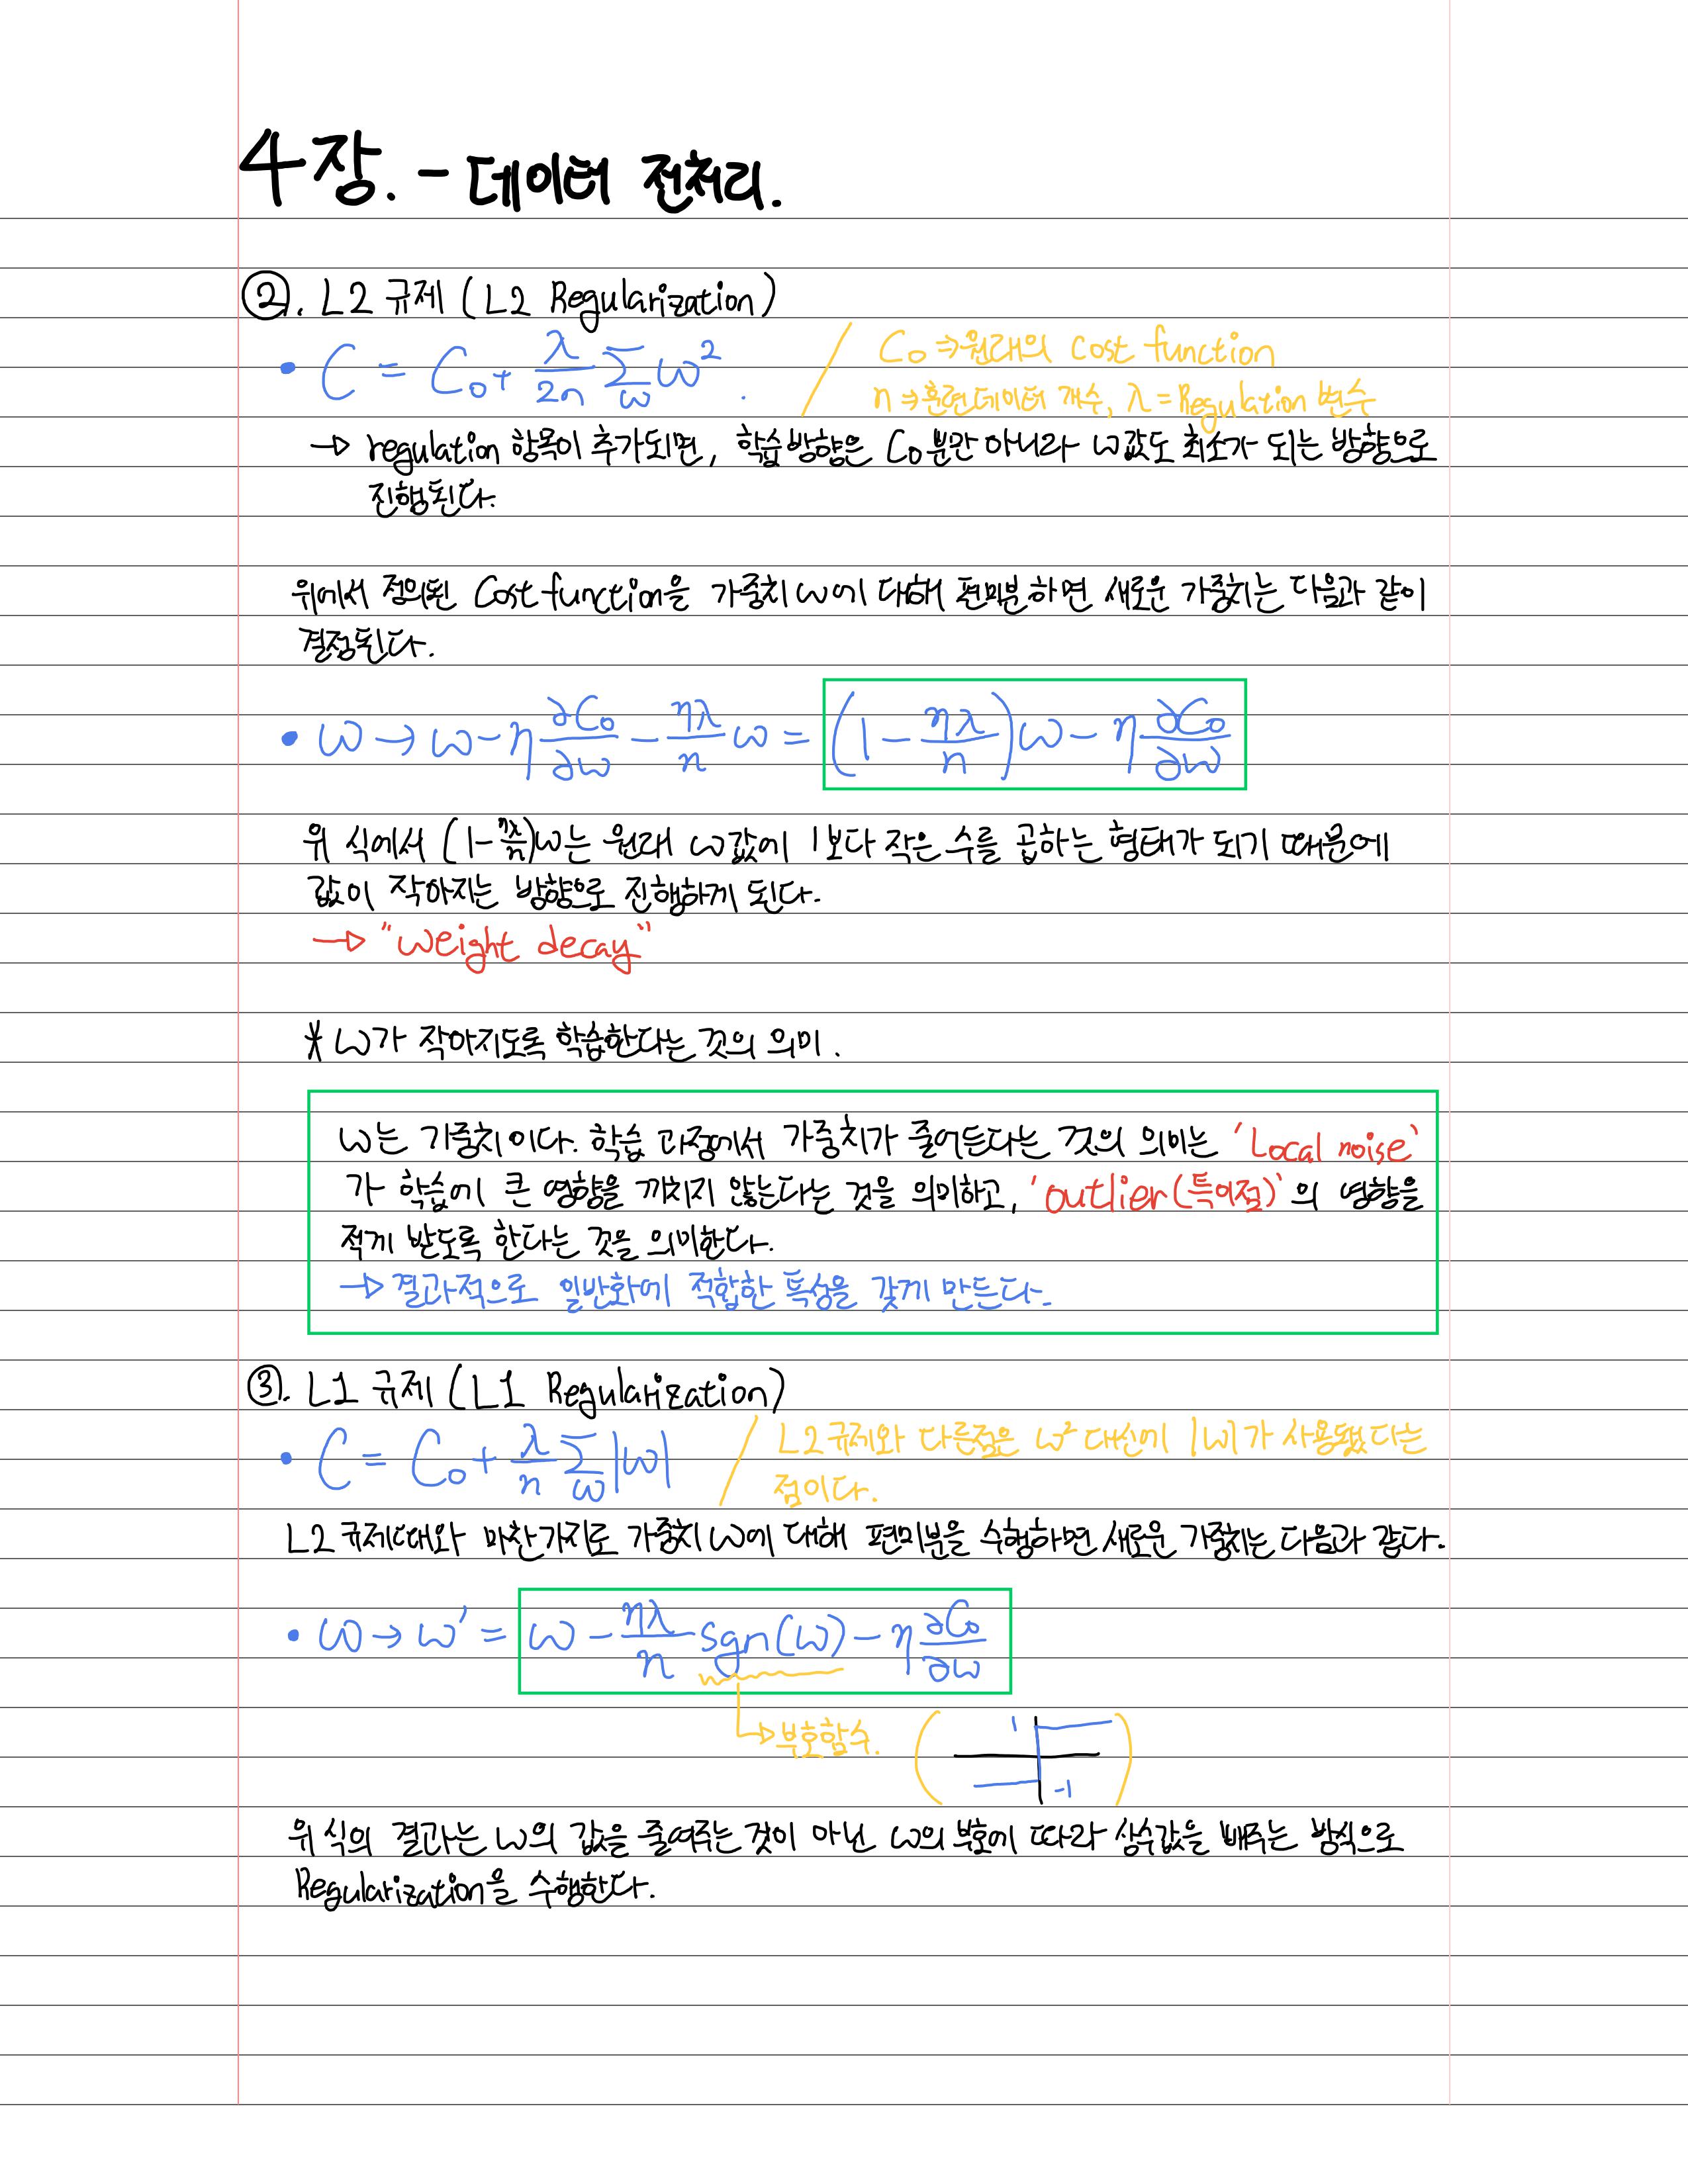 4장. - 데이터 전처리.
②. L2 규제 (L2 Regularization)
• C = C₀ + λ/2n Σ_w w² . / C₀ ⇒ 원래의 cost function
n ⇒ 훈련데이터 개수, λ = Regulation 변수
→ regulation 항목이 추가되면, 학습방향은 C₀ 뿐만 아니라 w값도 최소가 되는 방향으로
진행된다.
위에서 정의된 Cost function을 가중치 w에 대해 편미분하면 새로운 가중치는 다음과 같이
결정된다.
• w → w - η ∂C₀/∂w - ηλ/n w = (1 - ηλ/n)w - η ∂C₀/∂w
위 식에서 (1 - ηλ/n)w는 원래 w값에 1보다 작은 수를 곱하는 형태가 되기 때문에
값이 작아지는 방향으로 진행하게 된다.
→ "weight decay"
* w가 작아지도록 학습한다는 것의 의미.
w는 가중치이다. 학습 과정에서 가중치가 줄어든다는 것의 의미는 'Local noise'
가 학습에 큰 영향을 끼치지 않는다는 것을 의미하고, 'outlier(특이점)'의 영향을
적게 받도록 한다는 것을 의미한다.
→ 결과적으로 일반화에 적합한 특성을 갖게 만든다.
③. L1 규제 (L1 Regularization)
• C = C₀ + λ/n Σ_w |w| / L2 규제와 다른점은 w² 대신에 |w|가 사용됐다는
점이다.
L2 규제때와 마찬가지로 가중치 w에 대해 편미분을 수행하면 새로운 가중치는 다음과 같다.
• w → w' = w - ηλ/n sgn(w) - η ∂C₀/∂w
→ 부호함수. ( 1 -1 )
위 식의 결과는 w의 값을 줄여주는 것이 아닌 w의 부호에 따라 상수값을 빼주는 방식으로
Regularization을 수행한다.